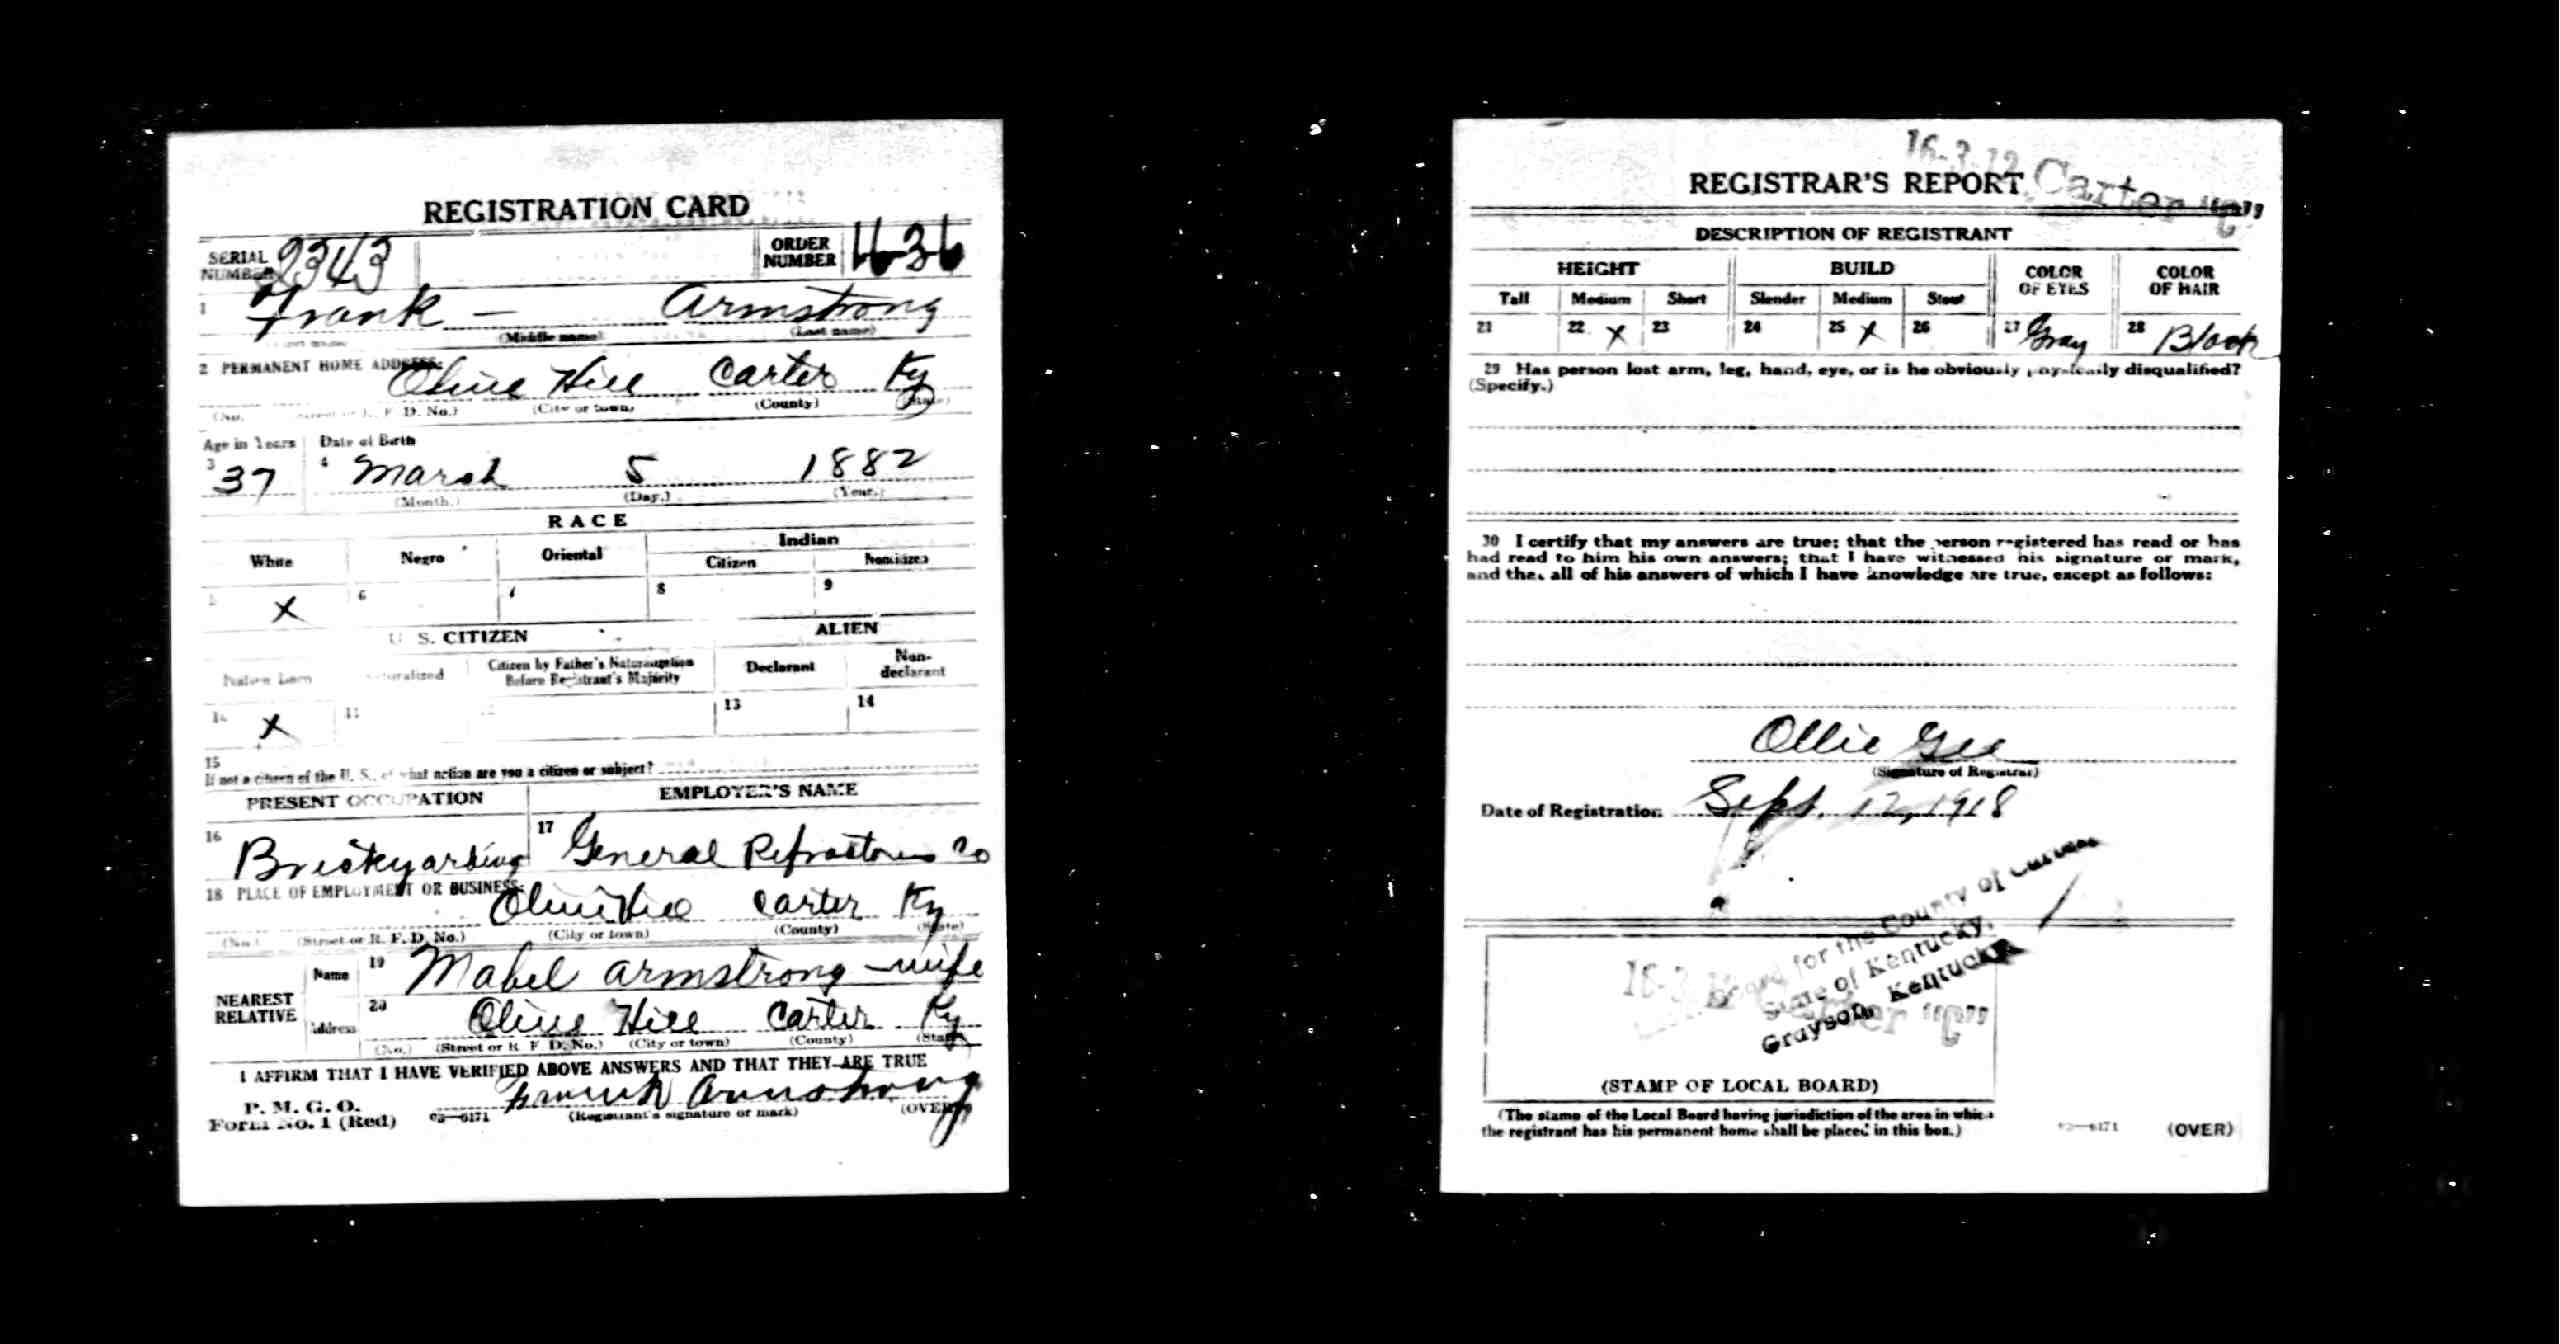 REGISTRATION CARD
SERIAL NUMBER 2343 ORDER NUMBER 1636
1 Frank — Armstrong
(Middle name) (Last name)
2 PERMANENT HOME ADDRESS: Olive Hill Carter Ky
(No. Street or R. F. D. No.) (City or town) (County) (State)
Age in Years Date of Birth
3 37 4 Marsh 5 1882
(Month.) (Day.) (Year.)
RACE
White Negro Oriental Indian
Citizen Noncitizen
5 X 6 7 8 9
U. S. CITIZEN ALIEN
Native Born Naturalized Citizen by Father's Naturalization Before Registrant's Majority Declarant Non-declarant
10 X 11 12 13 14
15
If not a citizen of the U. S., of what nation are you a citizen or subject?
PRESENT OCCUPATION EMPLOYER'S NAME
16 Brickyarding 17 General Refractories Co
18 PLACE OF EMPLOYMENT OR BUSINESS: Olive Hill Carter Ky
(No.) (Street or R. F. D. No.) (City or town) (County) (State)
NEAREST RELATIVE Name 19 Mabel Armstrong — wife
Address 20 Olive Hill Carter Ky
(No.) (Street or R. F. D. No.) (City or town) (County) (State)
I AFFIRM THAT I HAVE VERIFIED ABOVE ANSWERS AND THAT THEY ARE TRUE
P. M. G. O.
Form No. 1 (Red) 03—6171 Frank Armstrong
(Registrant's signature or mark) (OVER)
16-3-12 Carter "C"
REGISTRAR'S REPORT
DESCRIPTION OF REGISTRANT
HEIGHT BUILD COLOR OF EYES COLOR OF HAIR
Tall Medium Short Slender Medium Stout
21 22 X 23 24 25 X 26 27 Gray 28 Black
29 Has person lost arm, leg, hand, eye, or is he obviously physically disqualified?
(Specify.)
30 I certify that my answers are true; that the person registered has read or has
had read to him his own answers; that I have witnessed his signature or mark,
and that all of his answers of which I have knowledge are true, except as follows:
Ollie Gee
(Signature of Registrar)
Date of Registration Sept. 12, 1918
Board for the County of Carter
State of Kentucky,
Grayson, Kentucky
16-3 Carter "C"
(STAMP OF LOCAL BOARD)
(The stamp of the Local Board having jurisdiction of the area in which
the registrant has his permanent home shall be placed in this box.)
03—6171 (OVER)